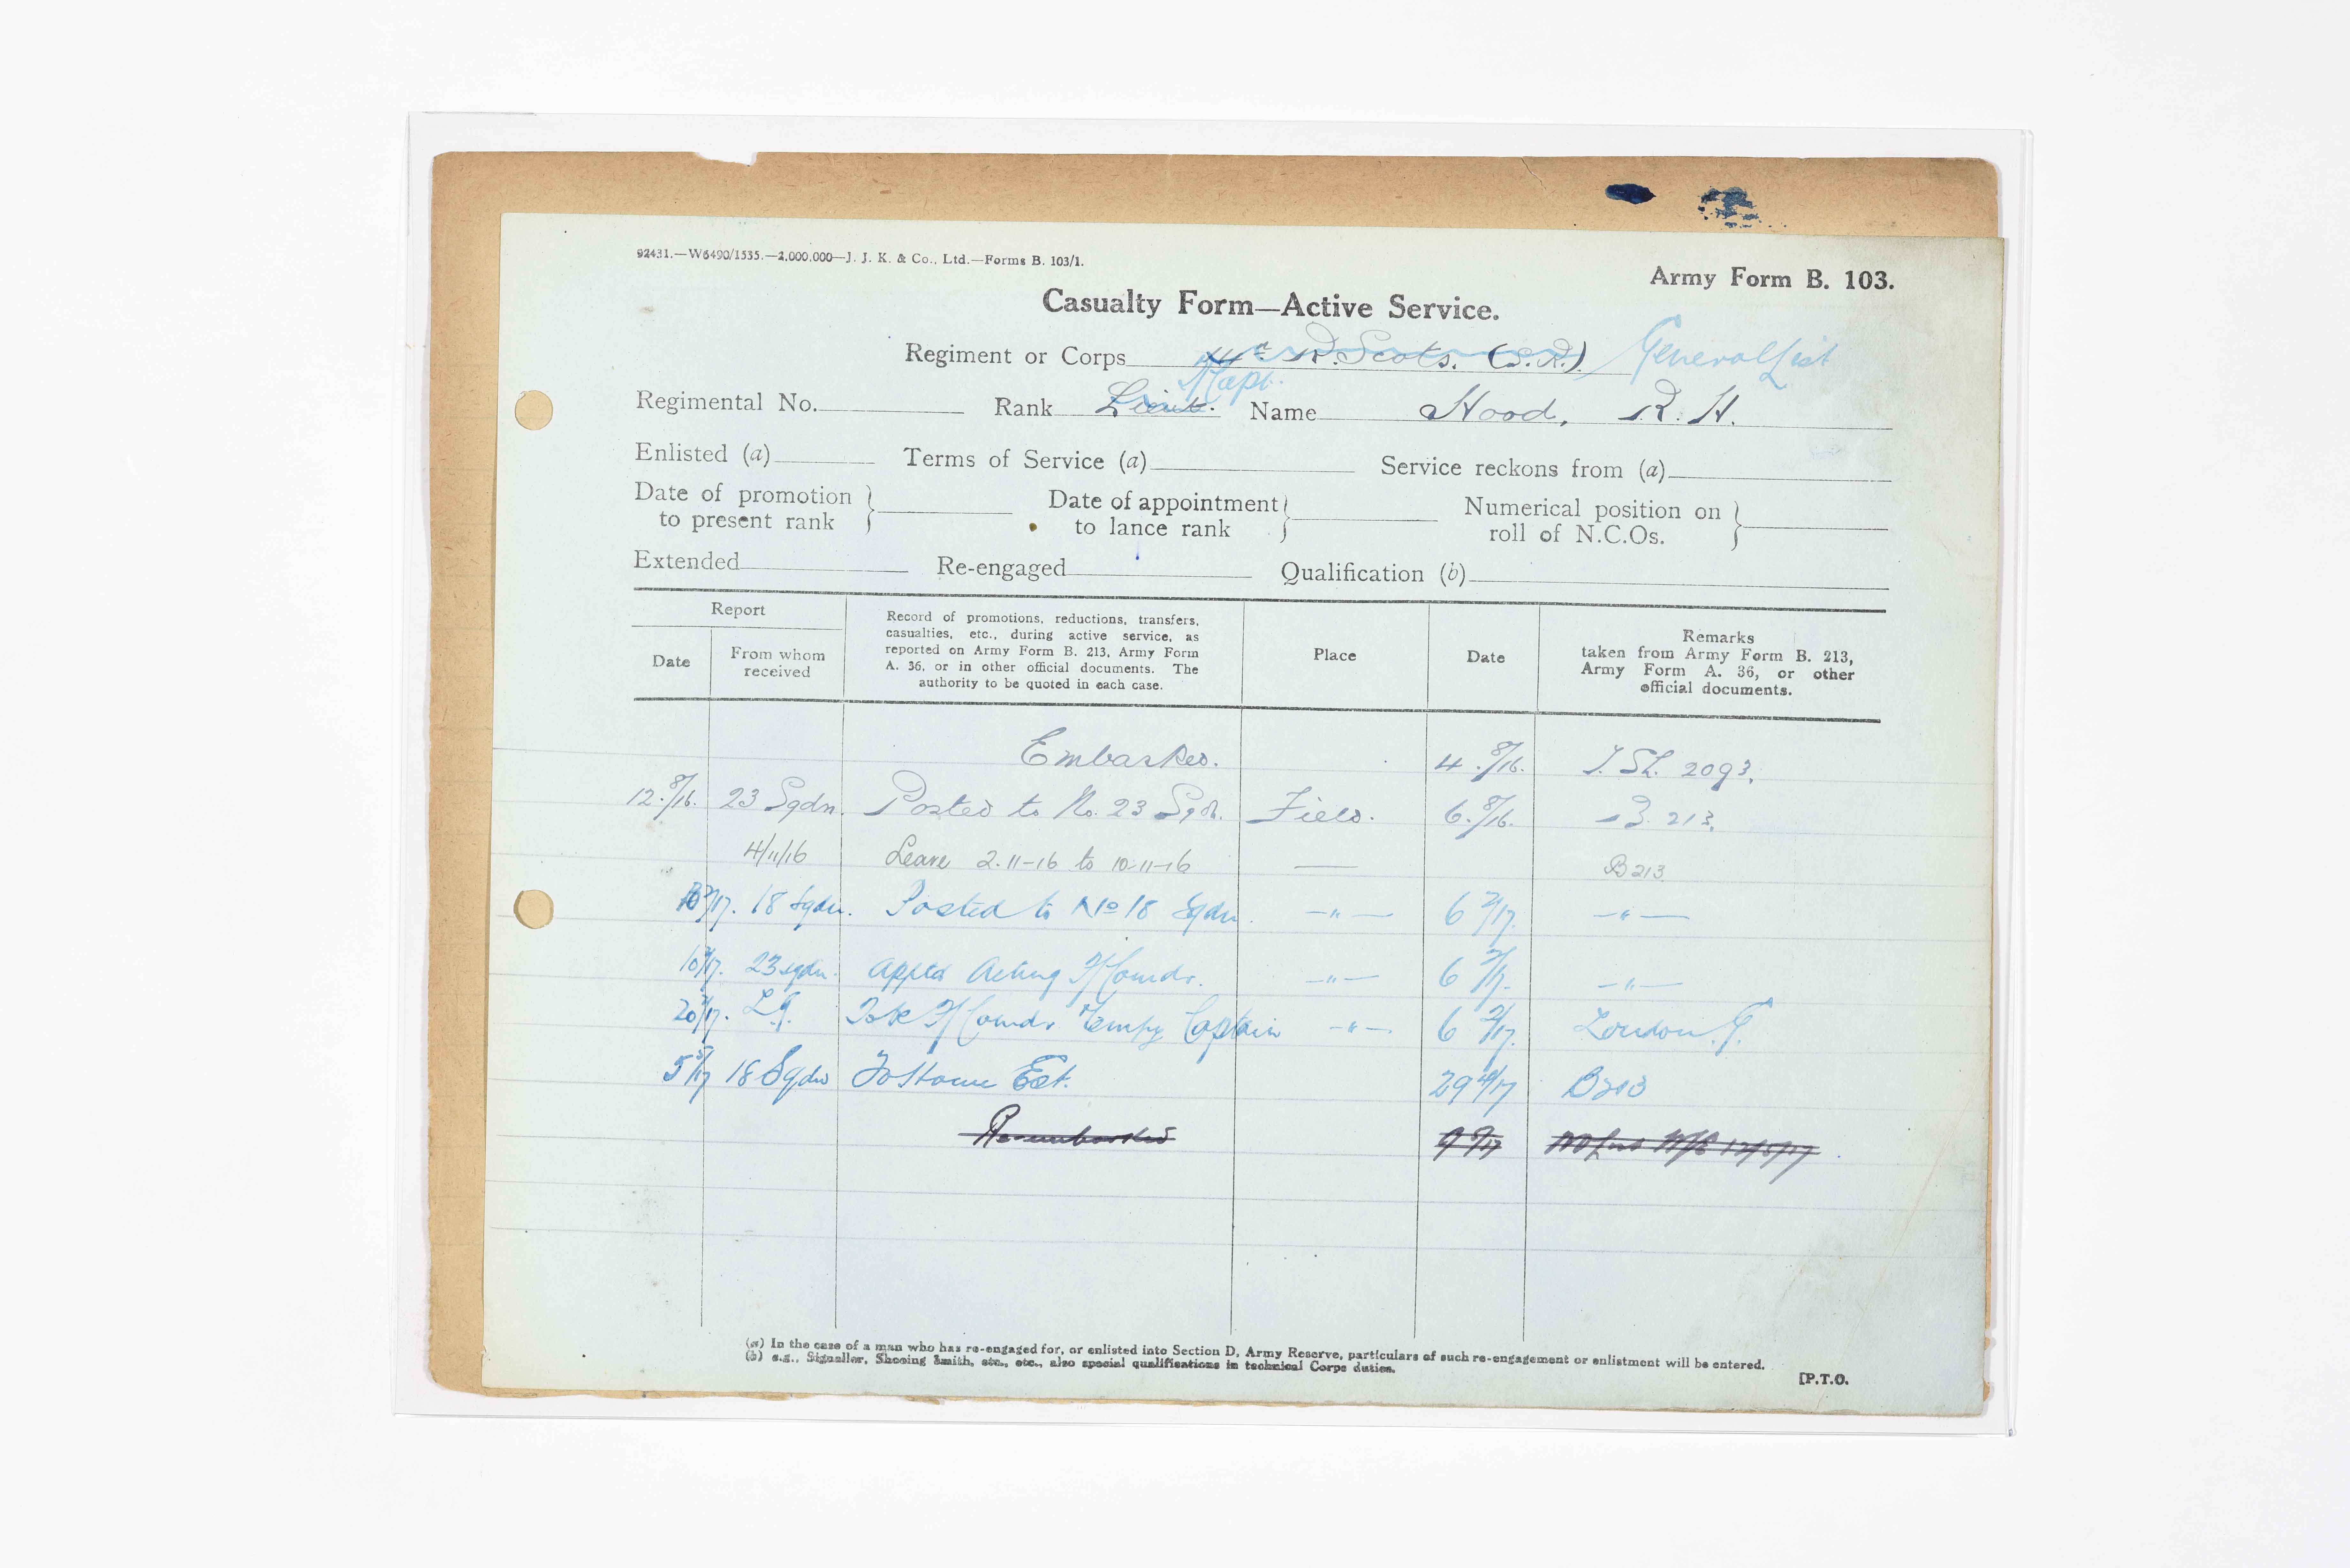 92431.—W6490/1535.—2,000,000—J. J. K. & Co., Ltd.—Forms B. 103/1.
Army Form B. 103.
Casualty Form—Active Service.
Regiment or Corps R. Scots. (S.R.) General List
T/Capt.
Regimental No. Rank Lieut. Name Hood, R. H.
Enlisted (a) Terms of Service (a) Service reckons from (a)
Date of promotion to present rank } Date of appointment to lance rank } Numerical position on roll of N.C.Os. }
Extended Re-engaged Qualification (b)
Report
Date
From whom received
Record of promotions, reductions, transfers,
casualties, etc., during active service, as
reported on Army Form B. 213, Army Form
A. 36, or in other official documents. The
authority to be quoted in each case.
Place
Date
Remarks
taken from Army Form B. 213,
Army Form A. 36, or other
official documents.
Embarked. 4.8/16. 2093.
12.8/16. 23 Sqdn. Posted to No. 23 Sqdn. Field. 6.8/16. B. 213.
4/11/16 Leave 2-11-16 to 10-11-16 — B213
18 Sqdn. Posted to No 18 Sqdn. —"— 6 2/17. —"—
10 2/17. 23 sqdn. appted Acting F/Comdr. —"— 6 2/17. —"—
20 2/17. L.G. To be F/Comdr Tempy Captain —"— 6 2/17. London G.
5 5/17 18 Sqdn To Home Est. 29 4/17 B213
Re-embarked
(a) In the case of a man who has re-engaged for, or enlisted into Section D, Army Reserve, particulars of such re-engagement or enlistment will be entered.
(b) e.g., Signaller, Shoeing Smith, etc., etc., also special qualifications in technical Corps duties.
[P.T.O.